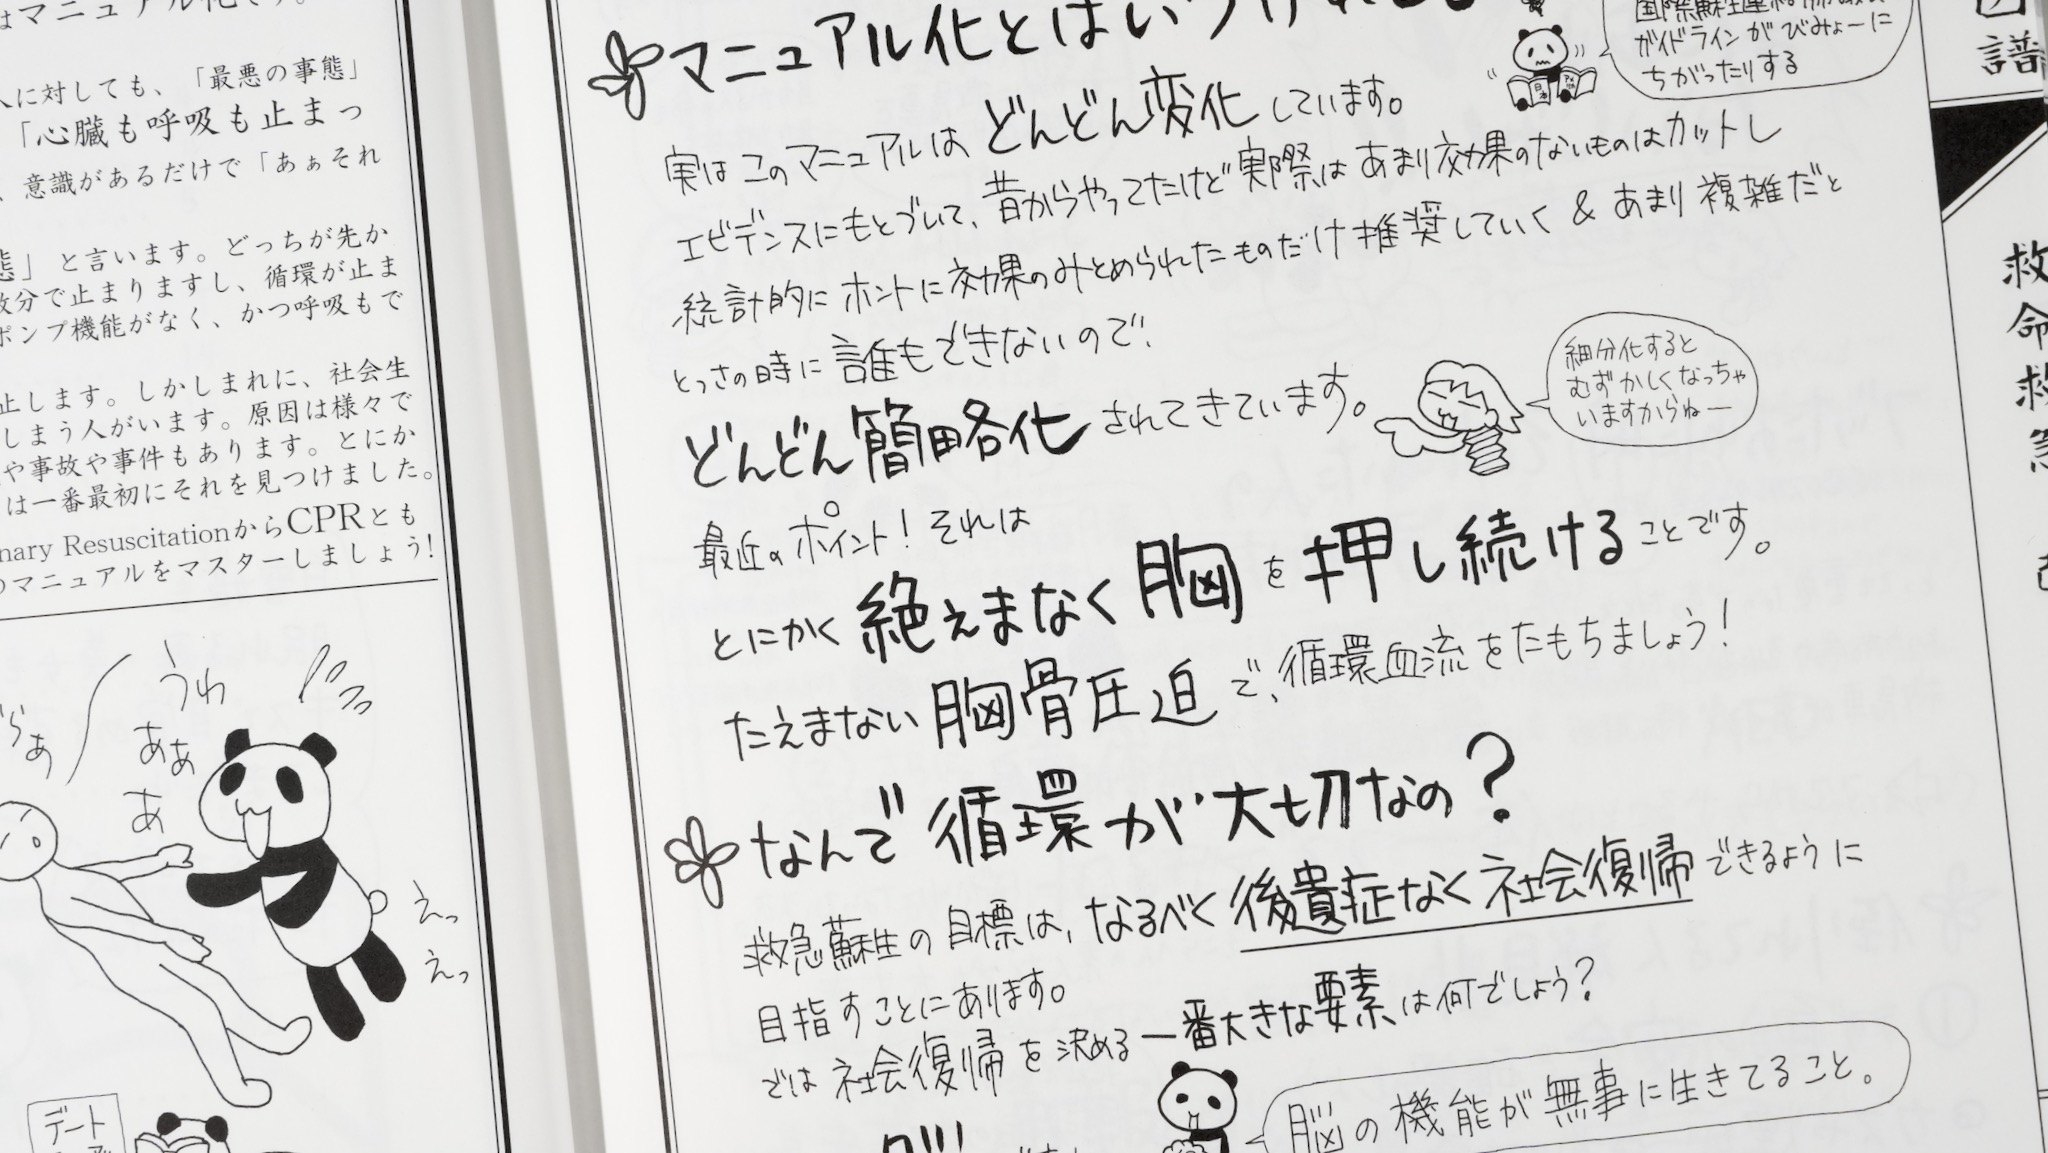 マニュアル化とはいう
国際蘇生連
ガイドラインがびみょーに
ちがったりする
実はこのマニュアルは どんどん変化しています。
エビデンスにもとづいて、昔からやってたけど実際はあまり効果のないものはカットし
統計的にホントに効果のみとめられたものだけ推奨していく & あまり複雑だと
とっさの時に誰もできないので、
どんどん簡略化されてきています。
細分化すると
むずかしくなっちゃ
いますからねー
最近のポイント！それは
とにかく絶えまなく胸を押し続けることです。
たえまない胸骨圧迫で、循環血流をたもちましょう！
なんで循環が大切なの？
救急蘇生の目標は、なるべく後遺症なく社会復帰できるように
目指すことにあります。
では社会復帰を決める一番大きな要素は何でしょう？
脳の機能が無事に生きてること。
はマニュアル化です。
人に対しても、「最悪の事態」
「心臓も呼吸も止まっ
、意識があるだけで「あぁそれ
態」と言います。どっちが先か
数分で止まりますし、循環が止ま
ポンプ機能がなく、かつ呼吸もで
止します。しかしまれに、社会生
しまう人がいます。原因は様々で
や事故や事件もあります。とにか
は一番最初にそれを見つけました。
nary ResuscitationからCPRとも
のマニュアルをマスターしましょう！
うわ
ああ
あ
らぁ
えっ
えっ
デート
譜
救命救急